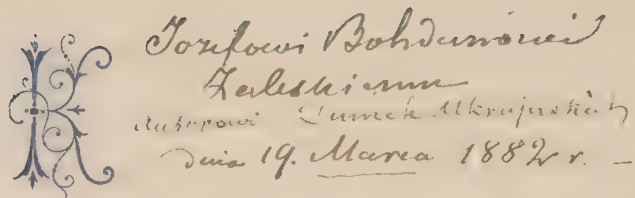 Józefowi Bohdanowi
Zaleskiemu
Autorowi Dumek Ukraińskich
dnia 19. Marca 1882 r. –